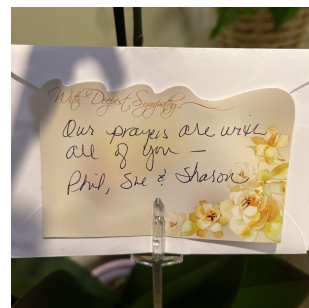 With Deepest Sympathy
Our prayers are with
all of you –
Phil, Sue & Sharon